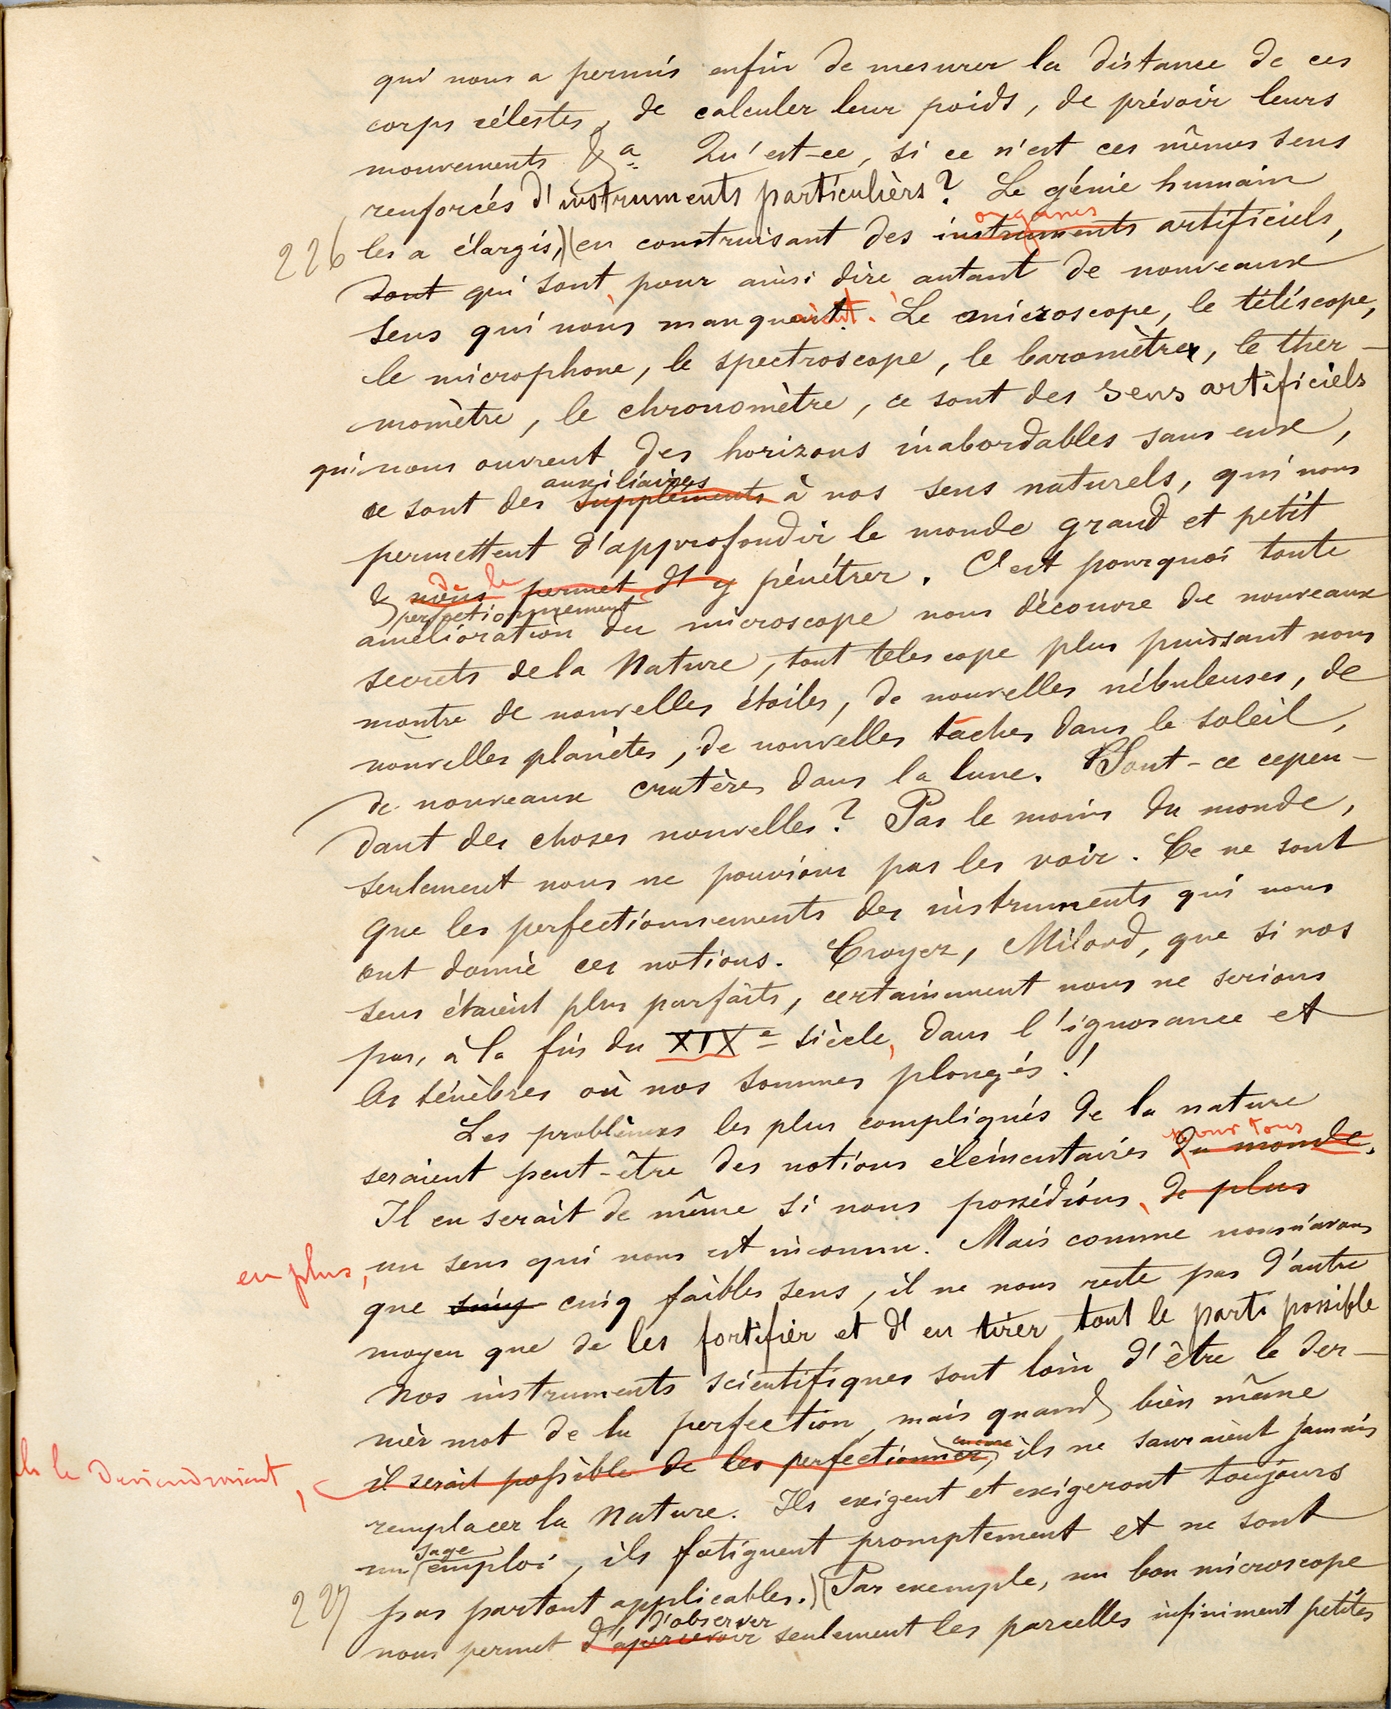 qui nous a permis enfin de mesurer la distance de ces
corps célestes, de calculer leur poids, de prévoir leurs
mouvements &a. Qu'est-ce, si ce n'est ces mêmes sens
renforcés d'instruments particuliers? Le génie humain
organes
226 les a élargis,)(en construisant des instruments artificiels,
dont qui sont, pour ainsi dire autant de nouveaux
sens qui nous manquaient. Le microscope, le téléscope,
le microphone, le spectroscope, le baromètre, le ther-
momètre, le chronomètre, ce sont des sens artificiels
qui nous ouvrent des horizons inabordables sans eux,
auxiliaires
ce sont des suppléments à nos sens naturels, qui nous
permettent d'approfondir le monde grand et petit
de le
& nous permet d'y pénétrer. C'est pourquoi toute
perfectionnement
amélioration du microscope nous découvre de nouveaux
secrets de la Nature, tout telescope plus puissant nous
montre de nouvelles étoiles, de nouvelles nébuleuses, de
nouvelles planètes, de nouvelles taches dans le soleil,
de nouveaux cratères dans la lune. Sont-ce cepen-
dant des choses nouvelles? Pas le moins du monde,
seulement nous ne pouvions pas les voir. Ce ne sont
que les perfectionnements des instruments qui nous
ont donné ces notions. Croyez, Milord, que si nos
sens étaient plus parfaits, certainement nous ne serions
pas, à la fin du XIXe siècle, dans l'ignorance et
les ténèbres où nos sommes plongés!
Les problèmes les plus compliqués de la nature
pour tous
seraient peut-être des notions élémentaires du monde.
Il en serait de même si nous possédions, de plus
en plus, un sens qui nous est inconnu. Mais comme nous n'avons
que cinq faibles sens, il ne nous reste pas d'autre
moyen que de les fortifier et d'en tirer tout le parti possible
Nos instruments scientifiques sont loin d'être le der-
nier mot de la perfection, mais quand bien même
encore
ils le deviendraient, il serait possible de les perfectionner, ils ne sauraient jamais
remplacer la Nature. Ils exigent et exigeront toujours
sage
un emploi, ils fatiguent promptement et ne sont
227 pas partout applicables.)(Par exemple, un bon microscope
d'observer
nous permet d'apercevoir seulement les parcelles infiniment petites